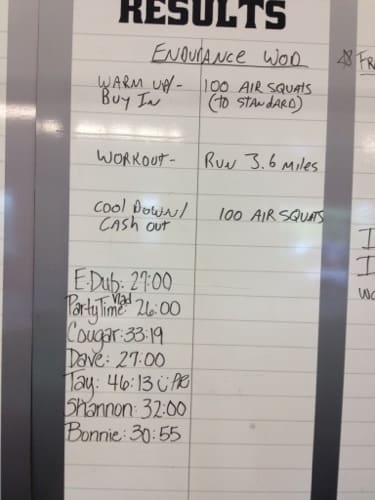 RESULTS
ENDURANCE WOD
WARM UP/- 100 AIR SQUATS
BUY IN (TO STANDARD)
WORKOUT- RUN 3.6 MILES
COOL DOWN/ 100 AIR SQUATS
CASH OUT
E.Dub: 27:00
PartyTime Vlad: 26:00
Cougar: 33:19
Dave: 27:00
Tay: 46:13
Shannon: 32:00
Bonnie: 30:55
FR
I
I
WO